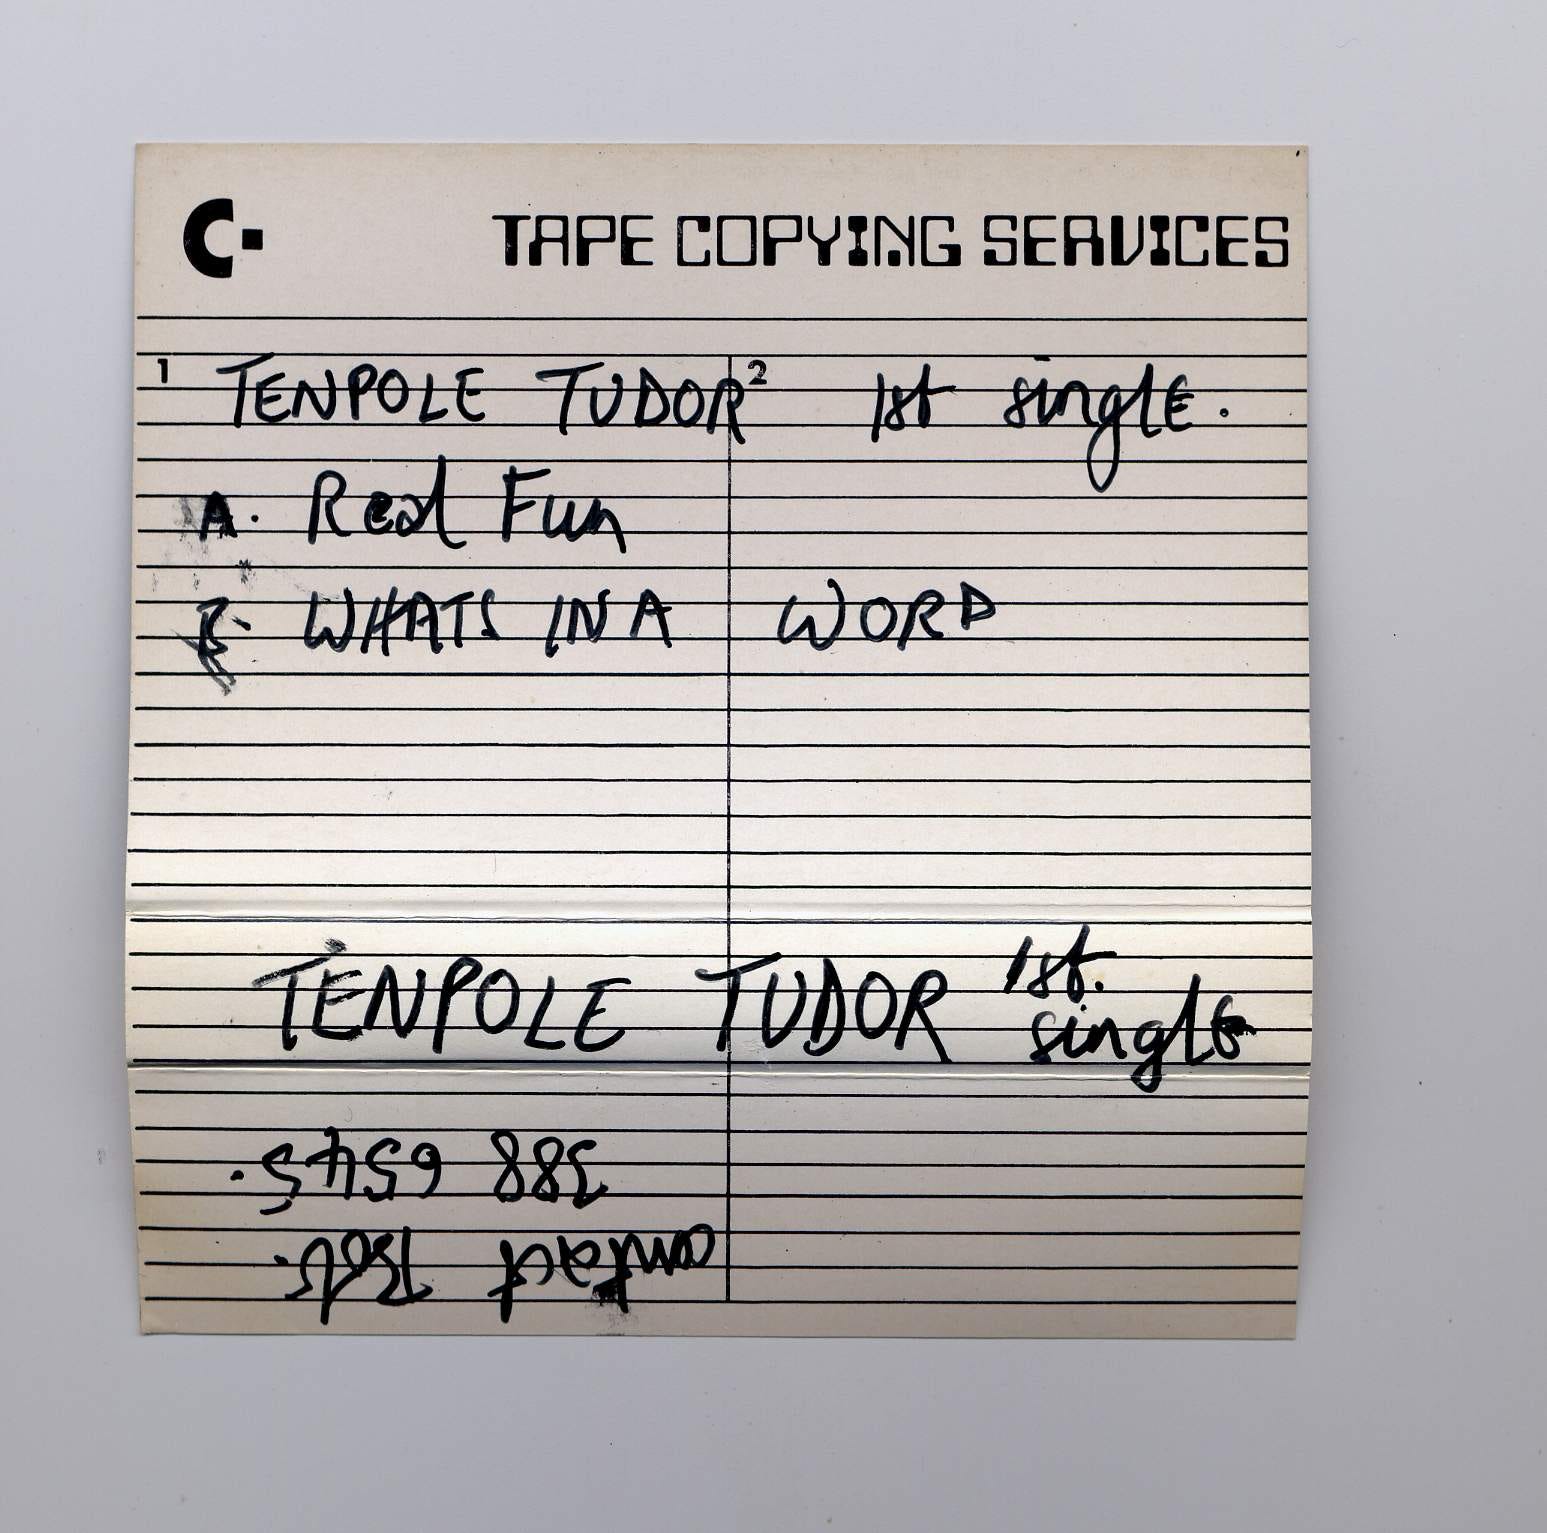 C-
TAPE COPYING SERVICES
1 2
TENPOLE TUDOR 1st single.
A. Real Fun
B. WHATS IN A WORD
TENPOLE TUDOR 1st.
single
contact
388 6545.